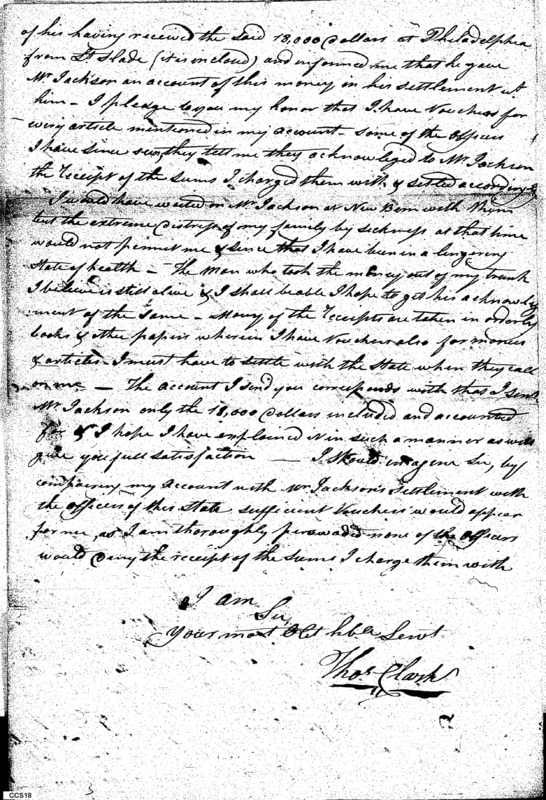 of his having received the said 18,000 Dollars at Philadelphia
from Lt Slade (it is incloud) and informed me that he gave
Mr. Jackson an account of this money in his settlement wt
him - I pledge to you my honor that I have Vouchers for
every article mentioned in my account - some of the officers
I have since seen, they tell me they acknowledged to Mr. Jackson
the receipt of the sums I charged them with & settled accordingly
I would have waited on Mr. Jackson at New Bern with them
but the extreme distress of my family by sickness at that time
would not permet me & since that I have been in a lingering
state of health - The man who took the money out of my trunk
I believe is still alive & I shall be able I hope to get his acknowledg
ment of the same - Many of the receipts are taken in orderly
books & other papers wherein I have Vouchers also for monies
& articles I must have to settle with the State when they call
on me - The account I send you corresponds with that I sent
Mr. Jackson only the 18,000 Dollars included and accounted
for & I hope I have explained in such a manner as will
give you full satisfaction - I should imagine Sir, by
comparing my account with Mr Jackson's Settlement with
the officers of this State sufficient Vouchers would appear
for me, as I am thoroughly perswaded none of the officers
would deny the receipt of the sums I charge them with
I am
Sir,
your most Obt hble Servt
Thos Clark
CCS18